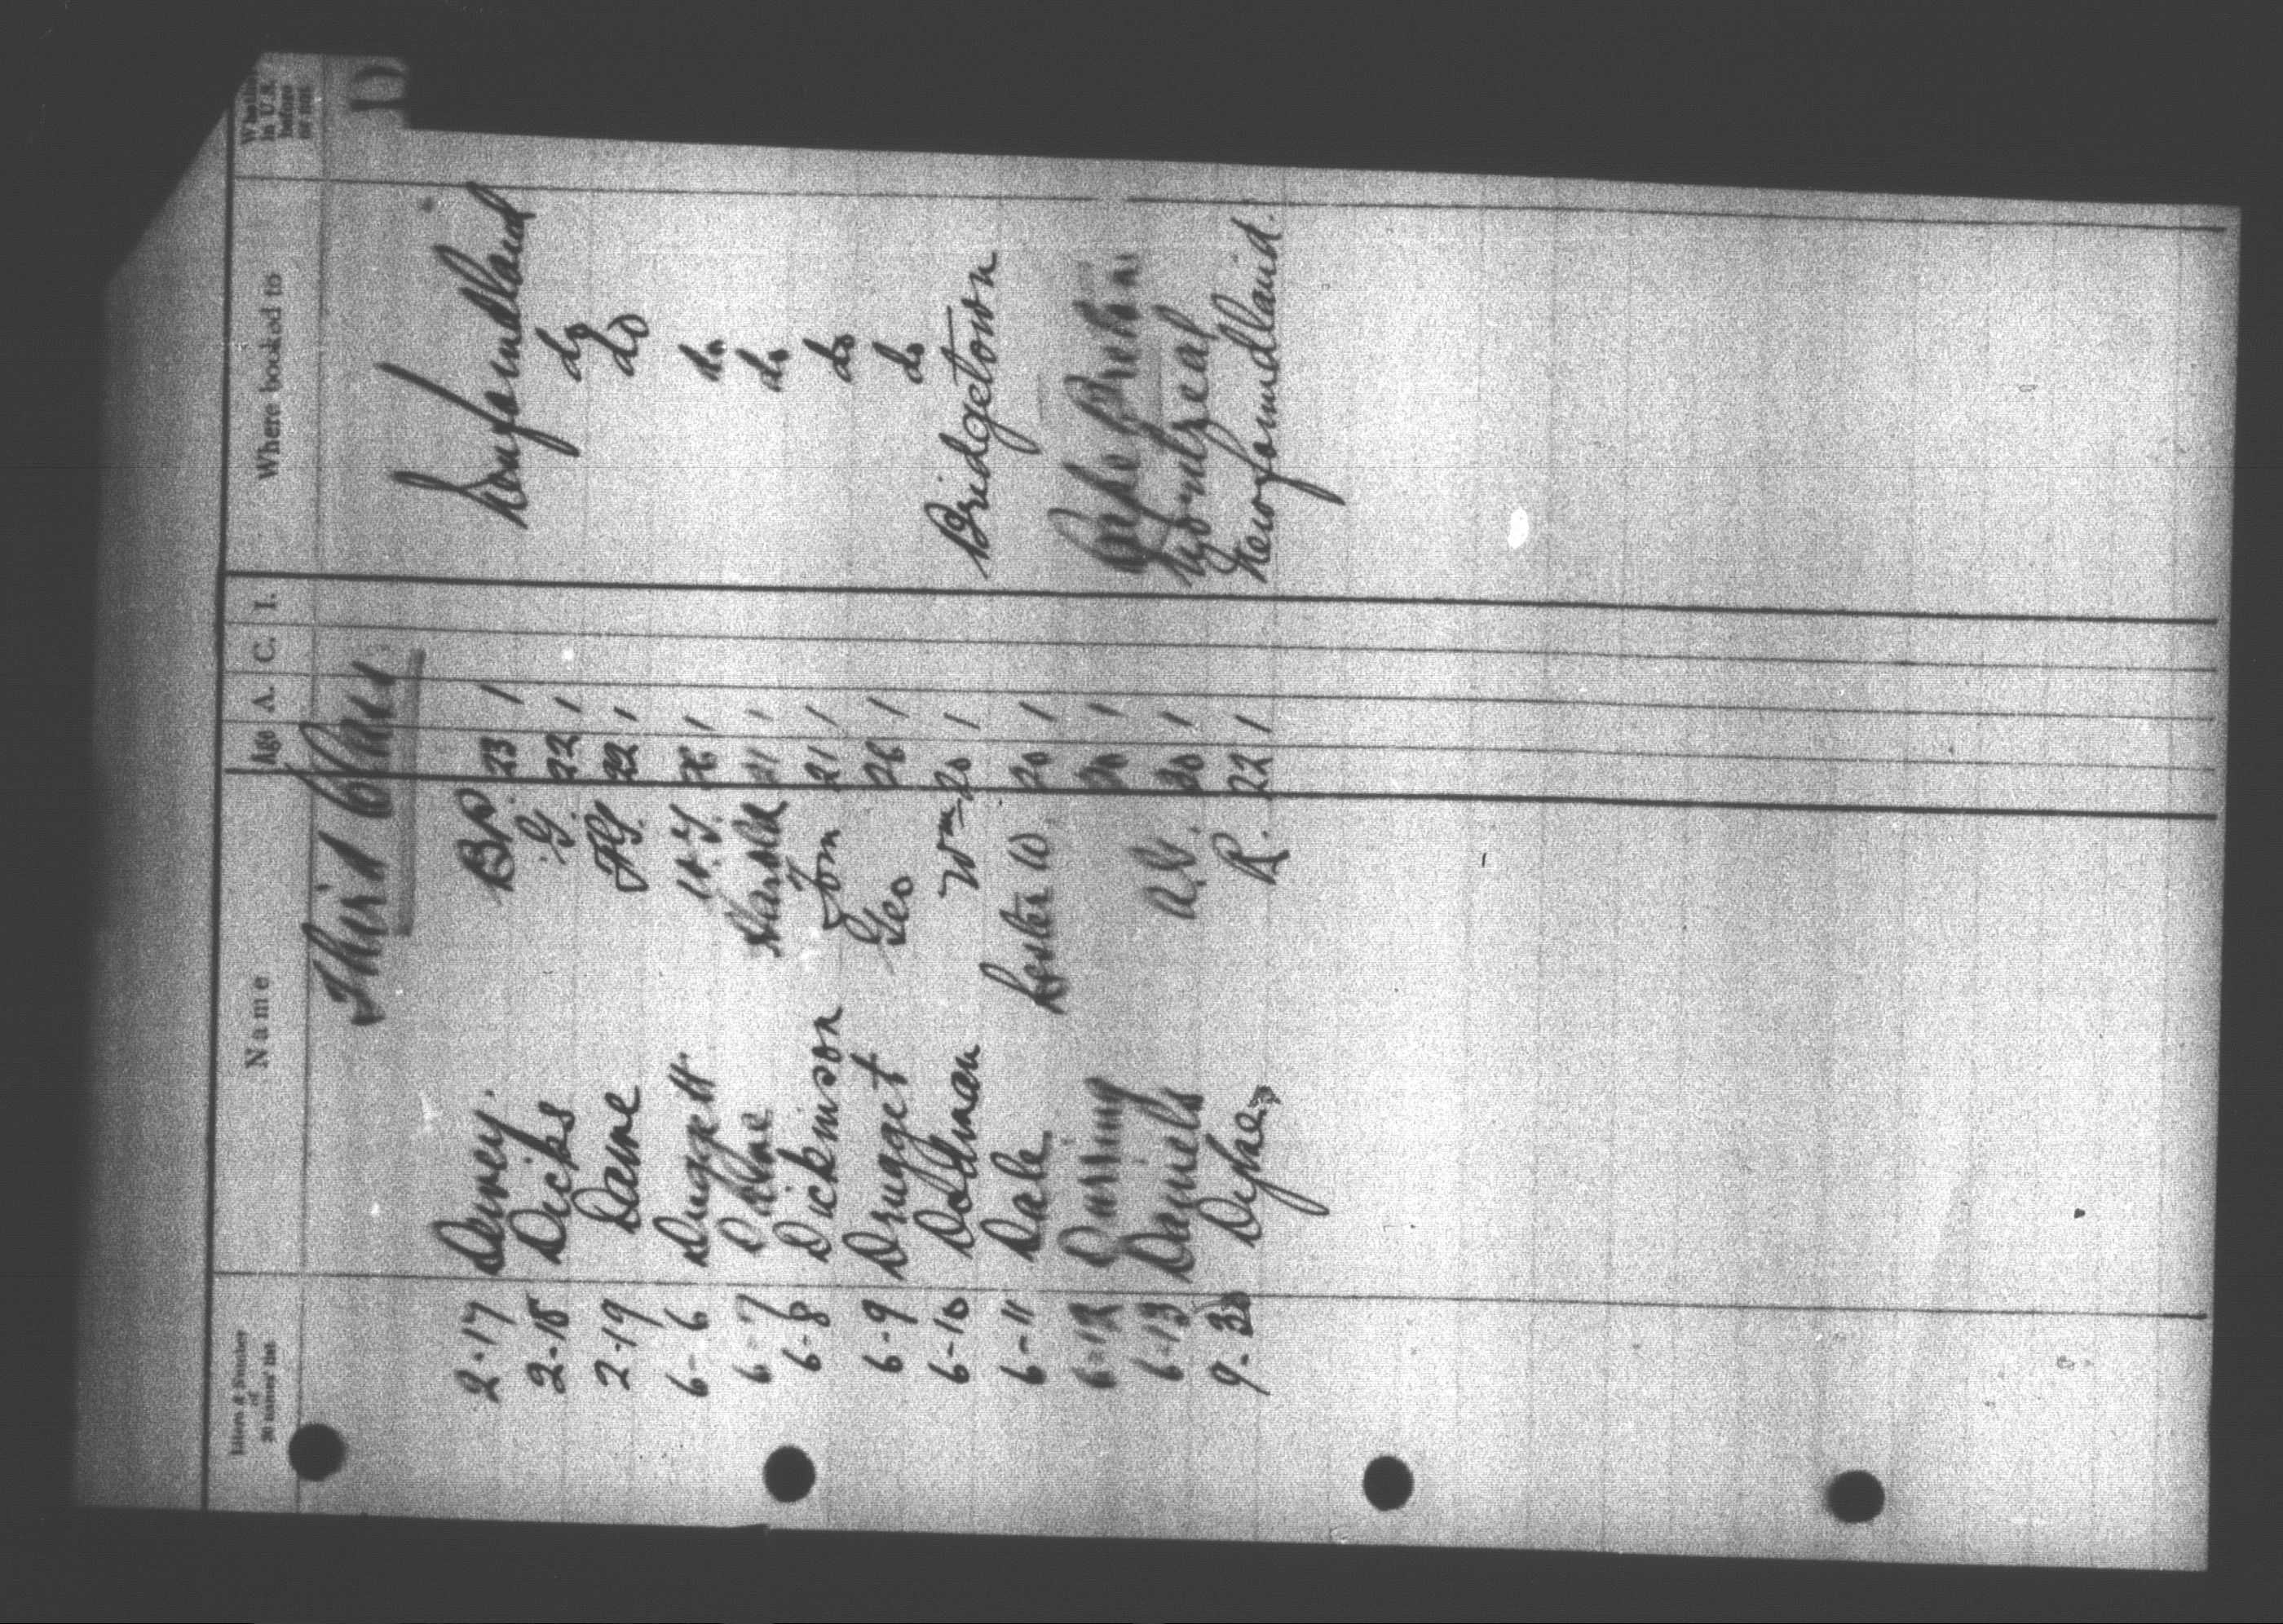 D
Letters & Number of 20 names' list Name Age A. C. I. Where booked to Whether in U.S. before or not
Third Class
2-17 Denney. BP. 23 1 Newfoundland
2-18 Dicks G. 22 1 do
2-19 Dawe 22 1 do
6-6 Duggett 1 do
6-7 Harold 21 1 do
6-8 Dickinson Tom 21 1 do
6-9 Drugget Geo 26 1 do
6-10 Dolman Wm 20 1 Bridgetown
6-11 Dale Lester W. 20 1
6-12 1 Cape Breton
6-13 Daniels 30 1 Montreal
9-30 Dyke R. 22 1 Newfoundland.